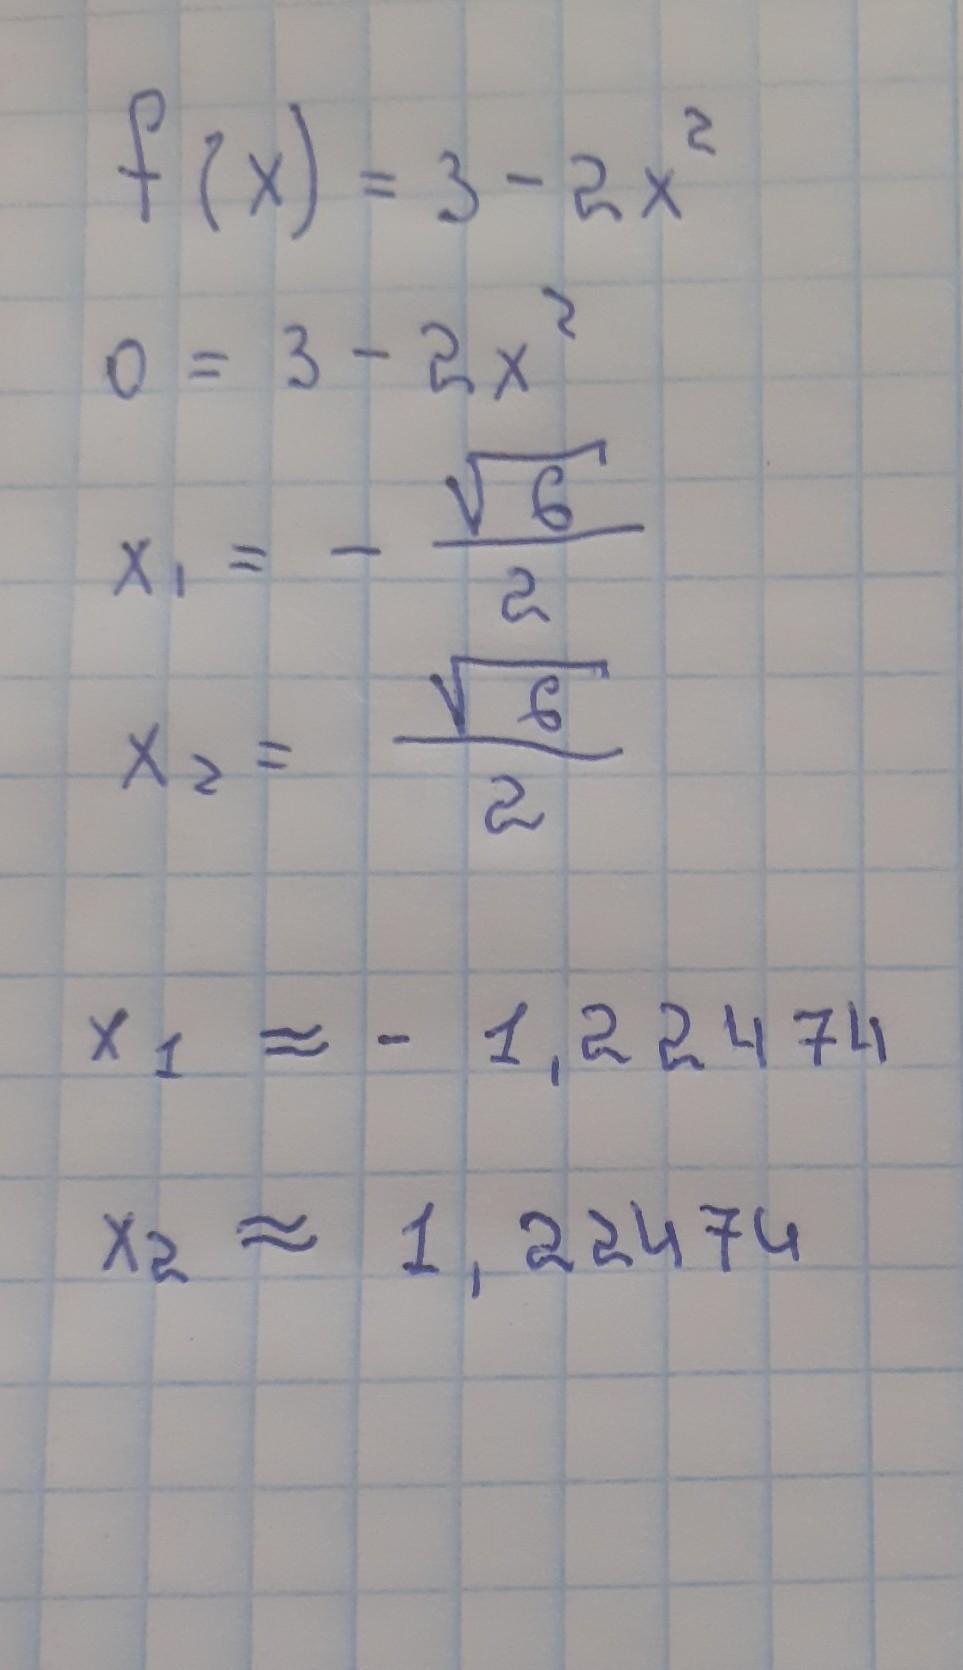 f(x) = 3 - 2x²
0 = 3 - 2x²
x₁ = - √6/2
x₂ = √6/2
x₁ ≈ - 1,22474
x₂ ≈ 1,22474